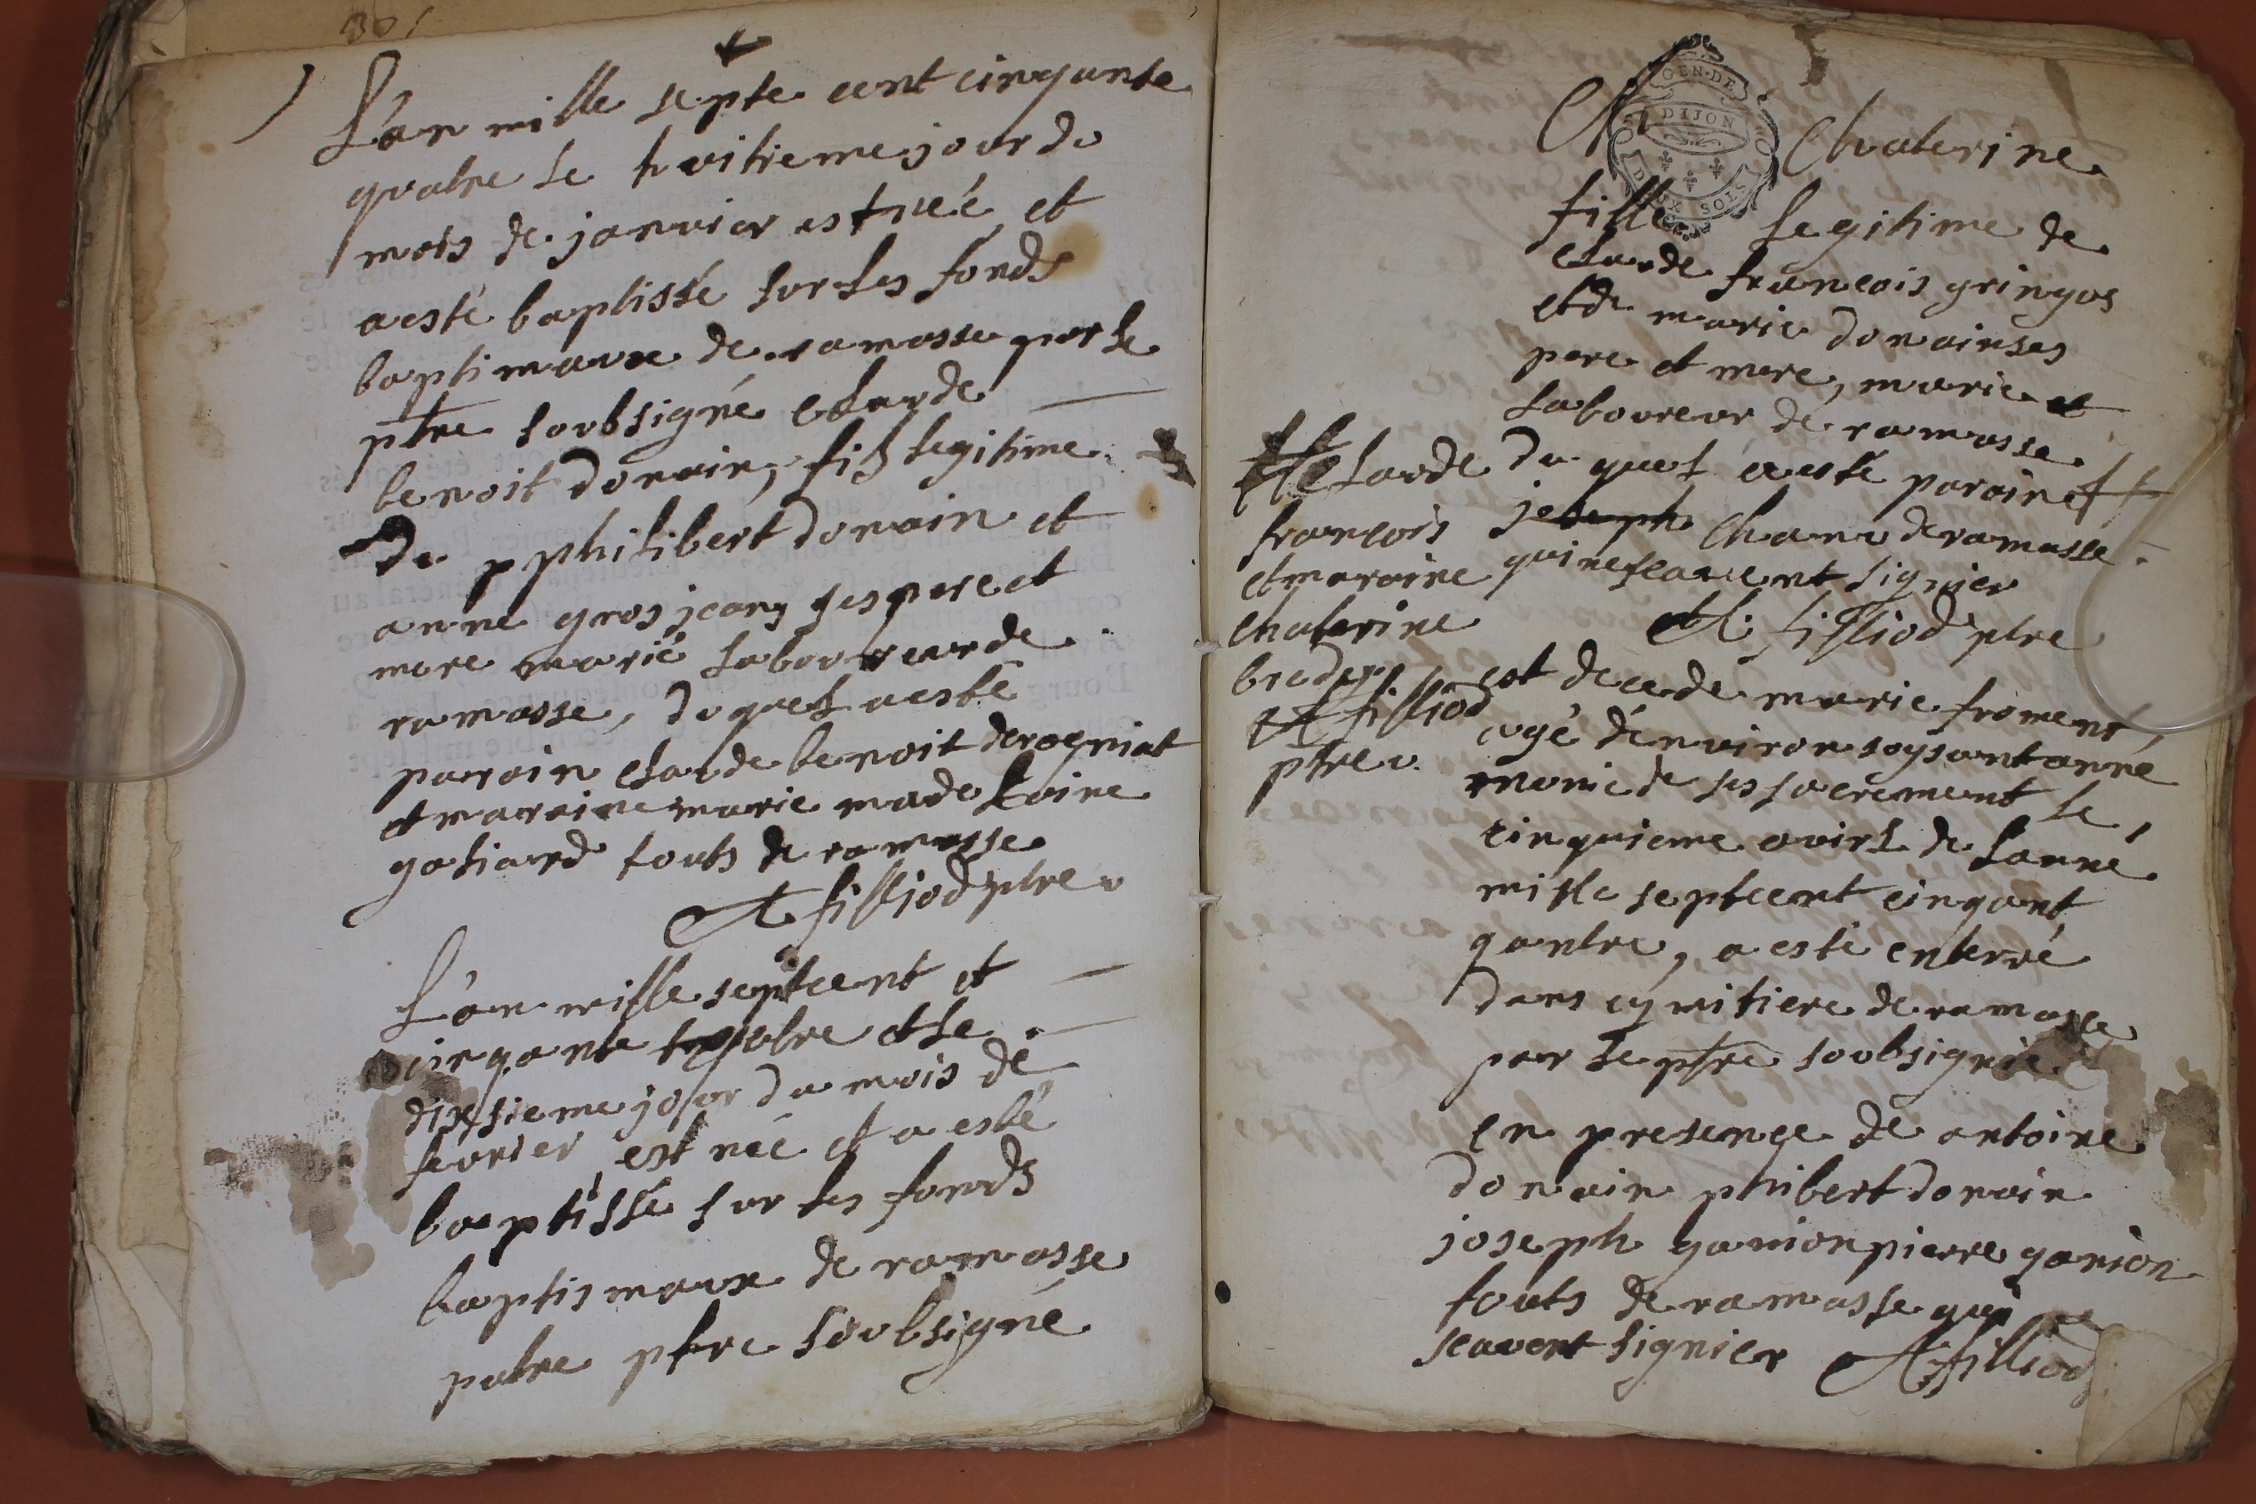 L'an mille septe cent cinqante
quatre le huitieme jour du
mois de janvier est neé et
a esté baptissé sur les fonds
baptimaux de ramasse par le
ptre soubsigné claude
benoit donain, fiz legitime
de p philibert donain et
anne grosjean ses pere et
mere marié laboureur de
ramasse, duquel a esté
parain claude benoit derogniat
et maraine marie madelaine
gohiard touts de ramasse
A filliod ptre
L'an mille sept cent et
cinqante quatre et le
dixsieme jour du mois de
fevrier est neé et a esté
baptissé sur les fonds
baptismaux de ramasse
par ptre soubsigné
GEN. DE
DIJON
DEUX SOLS
Chaterine
fille legitime de
claude francois gringos
et de marie donain ses
pere et mere, marie et
laboureur de ramasse
du quel a esté parain
joseph Chanu de ramasse
qui ne scavent signier
A. filliod ptre
claude
francois
et maraine
chaterine
A filliod
ptre
est decede marie froment
agé d'environ soysant anné
munie de ses sacrement le
cinquieme avirl de lanné
mille septcent cinqant
qantre, a esté enterré
dans cymitiere de ramasse
par le ptre soubsignié
en presence de antoine
donain phibert donain
joseph ganion pierre ganion
touts de ramasse qui ne
scavent signier A filliod